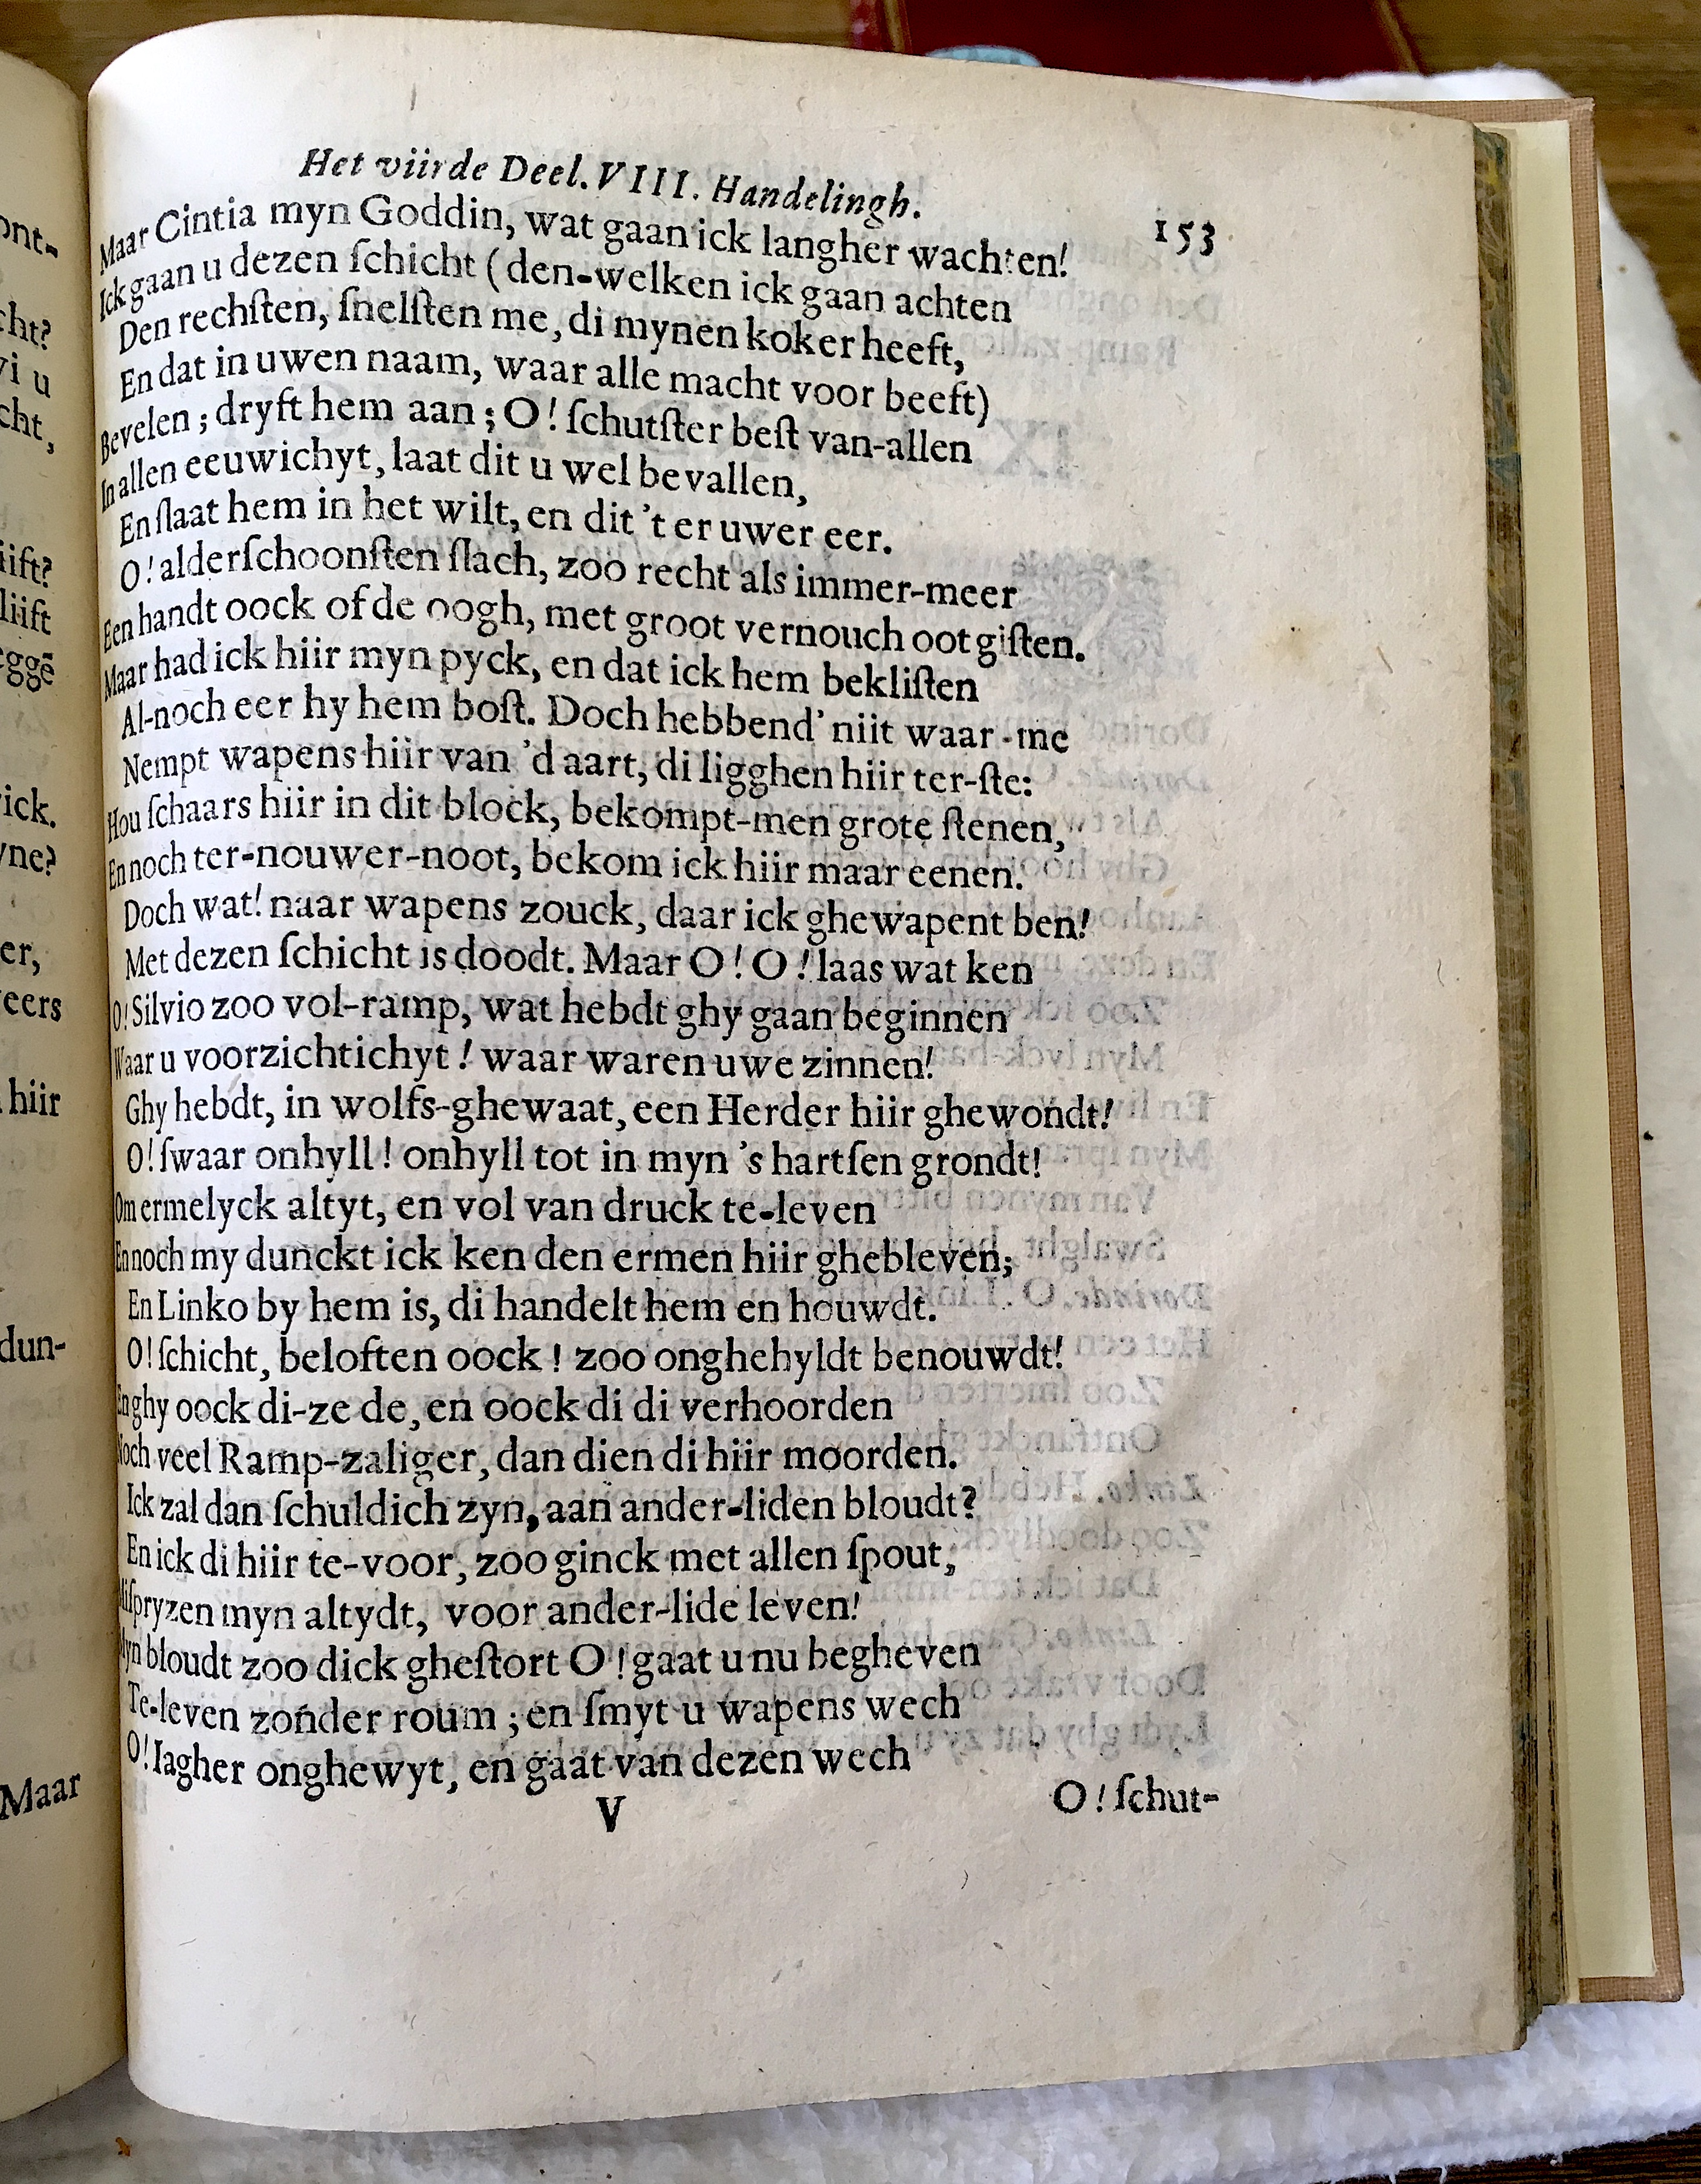 Het viirde Deel. VIII. Handelingh.
153
Maar Cintia myn Goddin, wat gaan ick langher wachten!
Ick gaan u dezen ſchicht (den-welken ick gaan achten
Den rechſten, ſnelſten me, di mynen koker heeft,
En dat in uwen naam, waar alle macht voor beeft)
Bevelen; dryft hem aan; O! ſchutſter beſt van-allen
In allen eeuwichyt, laat dit u wel bevallen,
En ſlaat hem in het wilt, en dit 't er uwer eer.
O! alderſchoonſten ſlach, zoo recht als immer-meer
Een handt oock of de oogh, met groot vernouch oot giſten.
Maar had ick hiir myn pyck, en dat ick hem bekliſten
Al-noch eer hy hem boſt. Doch hebbend' niit waar-me
Nempt wapens hiir van 'd aart, di ligghen hiir ter-ſte:
Hou ſchaars hiir in dit block, bekompt-men grote ſtenen,
En noch ter-nouwer-noot, bekom ick hiir maar eenen.
Doch wat! naar wapens zouck, daar ick ghewapent ben!
Met dezen ſchicht is doodt. Maar O! O! laas wat ken
O! Silvio zoo vol-ramp, wat hebdt ghy gaan beginnen
Waar u voorzichtichyt! waar waren uwe zinnen!
Ghy hebdt, in wolfs-ghewaat, een Herder hiir ghewondt!
O! ſwaar onhyll! onhyll tot in myn 's hartſen grondt!
Om ermelyck altyt, en vol van druck te-leven
En noch my dunckt ick ken den ermen hiir ghebleven;
En Linko by hem is, di handelt hem en houwdt.
O! ſchicht, beloften oock! zoo onghehyldt benouwdt!
En ghy oock di-ze de, en oock di di verhoorden
Noch veel Ramp-zaliger, dan dien di hiir moorden.
Ick zal dan ſchuldich zyn, aan ander-liden bloudt?
En ick di hiir te-voor, zoo ginck met allen ſpout,
Miſpryzen myn altydt, voor ander-lide leven!
Myn bloudt zoo dick gheſtort O! gaat u nu begheven
Te-leven zonder roum; en ſmyt u wapens wech
O! Iagher onghewyt, en gaat van dezen wech
V
O! ſchut-
ont-
cht?
vi u
cht,
iift?
liift
eggē
ick.
yne?
er,
eers
hiir
dun-
Maar